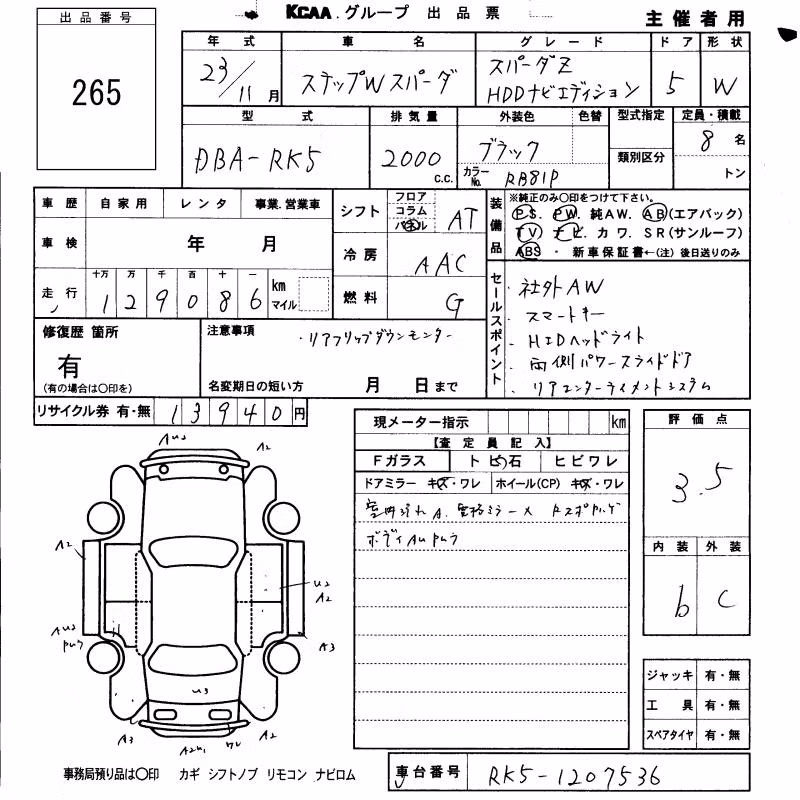 出品番号
265
KCAA. グループ 出品票
主催者用
年式 車名 グレード ドア 形状
23/11月 ステップWスパーダ スパーダZ HDDナビエディション 5 W
型式 排気量 外装色 色替 型式指定 定員・積載
DBA-RK5 2000 c.c. ブラック カラーNo. RB81P 類別区分 8名 トン
車歴 自家用 レンタ 事業.営業車
車検 年 月
走行 十万 万 千 百 十 一 km マイル
129086
シフト フロア コラム パネル AT
冷房 AAC
燃料 G
装備品
※純正のみ○印をつけて下さい。
P.S. PW. 純AW. AB(エアバック)
TV ナビ. カワ. SR(サンルーフ)
ABS ・ 新車保証書←(注) 後日送りのみ
セールスポイント
・社外AW
・スマートキー
・HIDヘッドライト
・両側パワースライドドア
・リアエンターテイメントシステム
修復歴 箇所
有
(有の場合は○印を)
注意事項
・リアフリップダウンモニター
名変期日の短い方 月 日まで
リサイクル券 有・無 13940円
現メーター指示 km
【査定員記入】
Fガラス トビ石 ヒビワレ
ドアミラー キズ・ワレ ホイール(CP) キズ・ワレ
室内汚れ A. 電格ミラー×
ボディAUPWラ
評価点
3.5
内装 外装
b C
ジャッキ 有・無
工具 有・無
スペアタイヤ 有・無
AU2
A2
A2
U2
A2
AU2
PWラ
A3
U3
A3
A2U1
ワレ
事務局預り品は○印 カギ シフトノブ リモコン ナビロム
車台番号 RK5-1207536